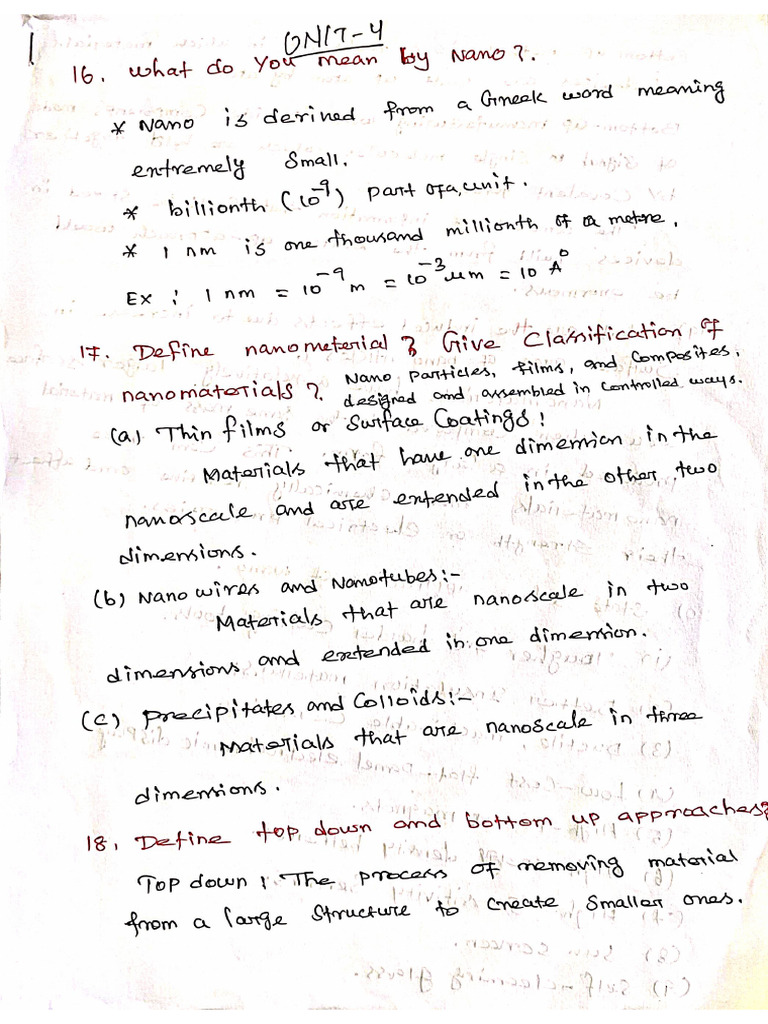 UNIT-4
16. What do you mean by Nano?.
* Nano is derived from a Greek word meaning
extremely small.
* billionth (10⁻⁹) part of a unit.
* 1 nm is one thousand millionth of a metre.
Ex : 1 nm = 10⁻⁹ m = 10⁻³ µm = 10 A⁰
17. Define nanometerial & Give Classification of
nanomaterials? Nano particles, films, and composites,
designed and assembled in controlled ways.
(a) Thin films or Surface Coatings:
Materials that have one dimension in the
nanoscale and are extended in the other two
dimensions.
(b) Nano wires and Nanotubes:-
Materials that are nanoscale in two
dimensions and extended in one dimension.
(c) Precipitates and Colloids:-
Materials that are nanoscale in three
dimensions.
18. Define top down and bottom up approaches?
Top down : The process of removing material
from a large structure to create smaller ones.